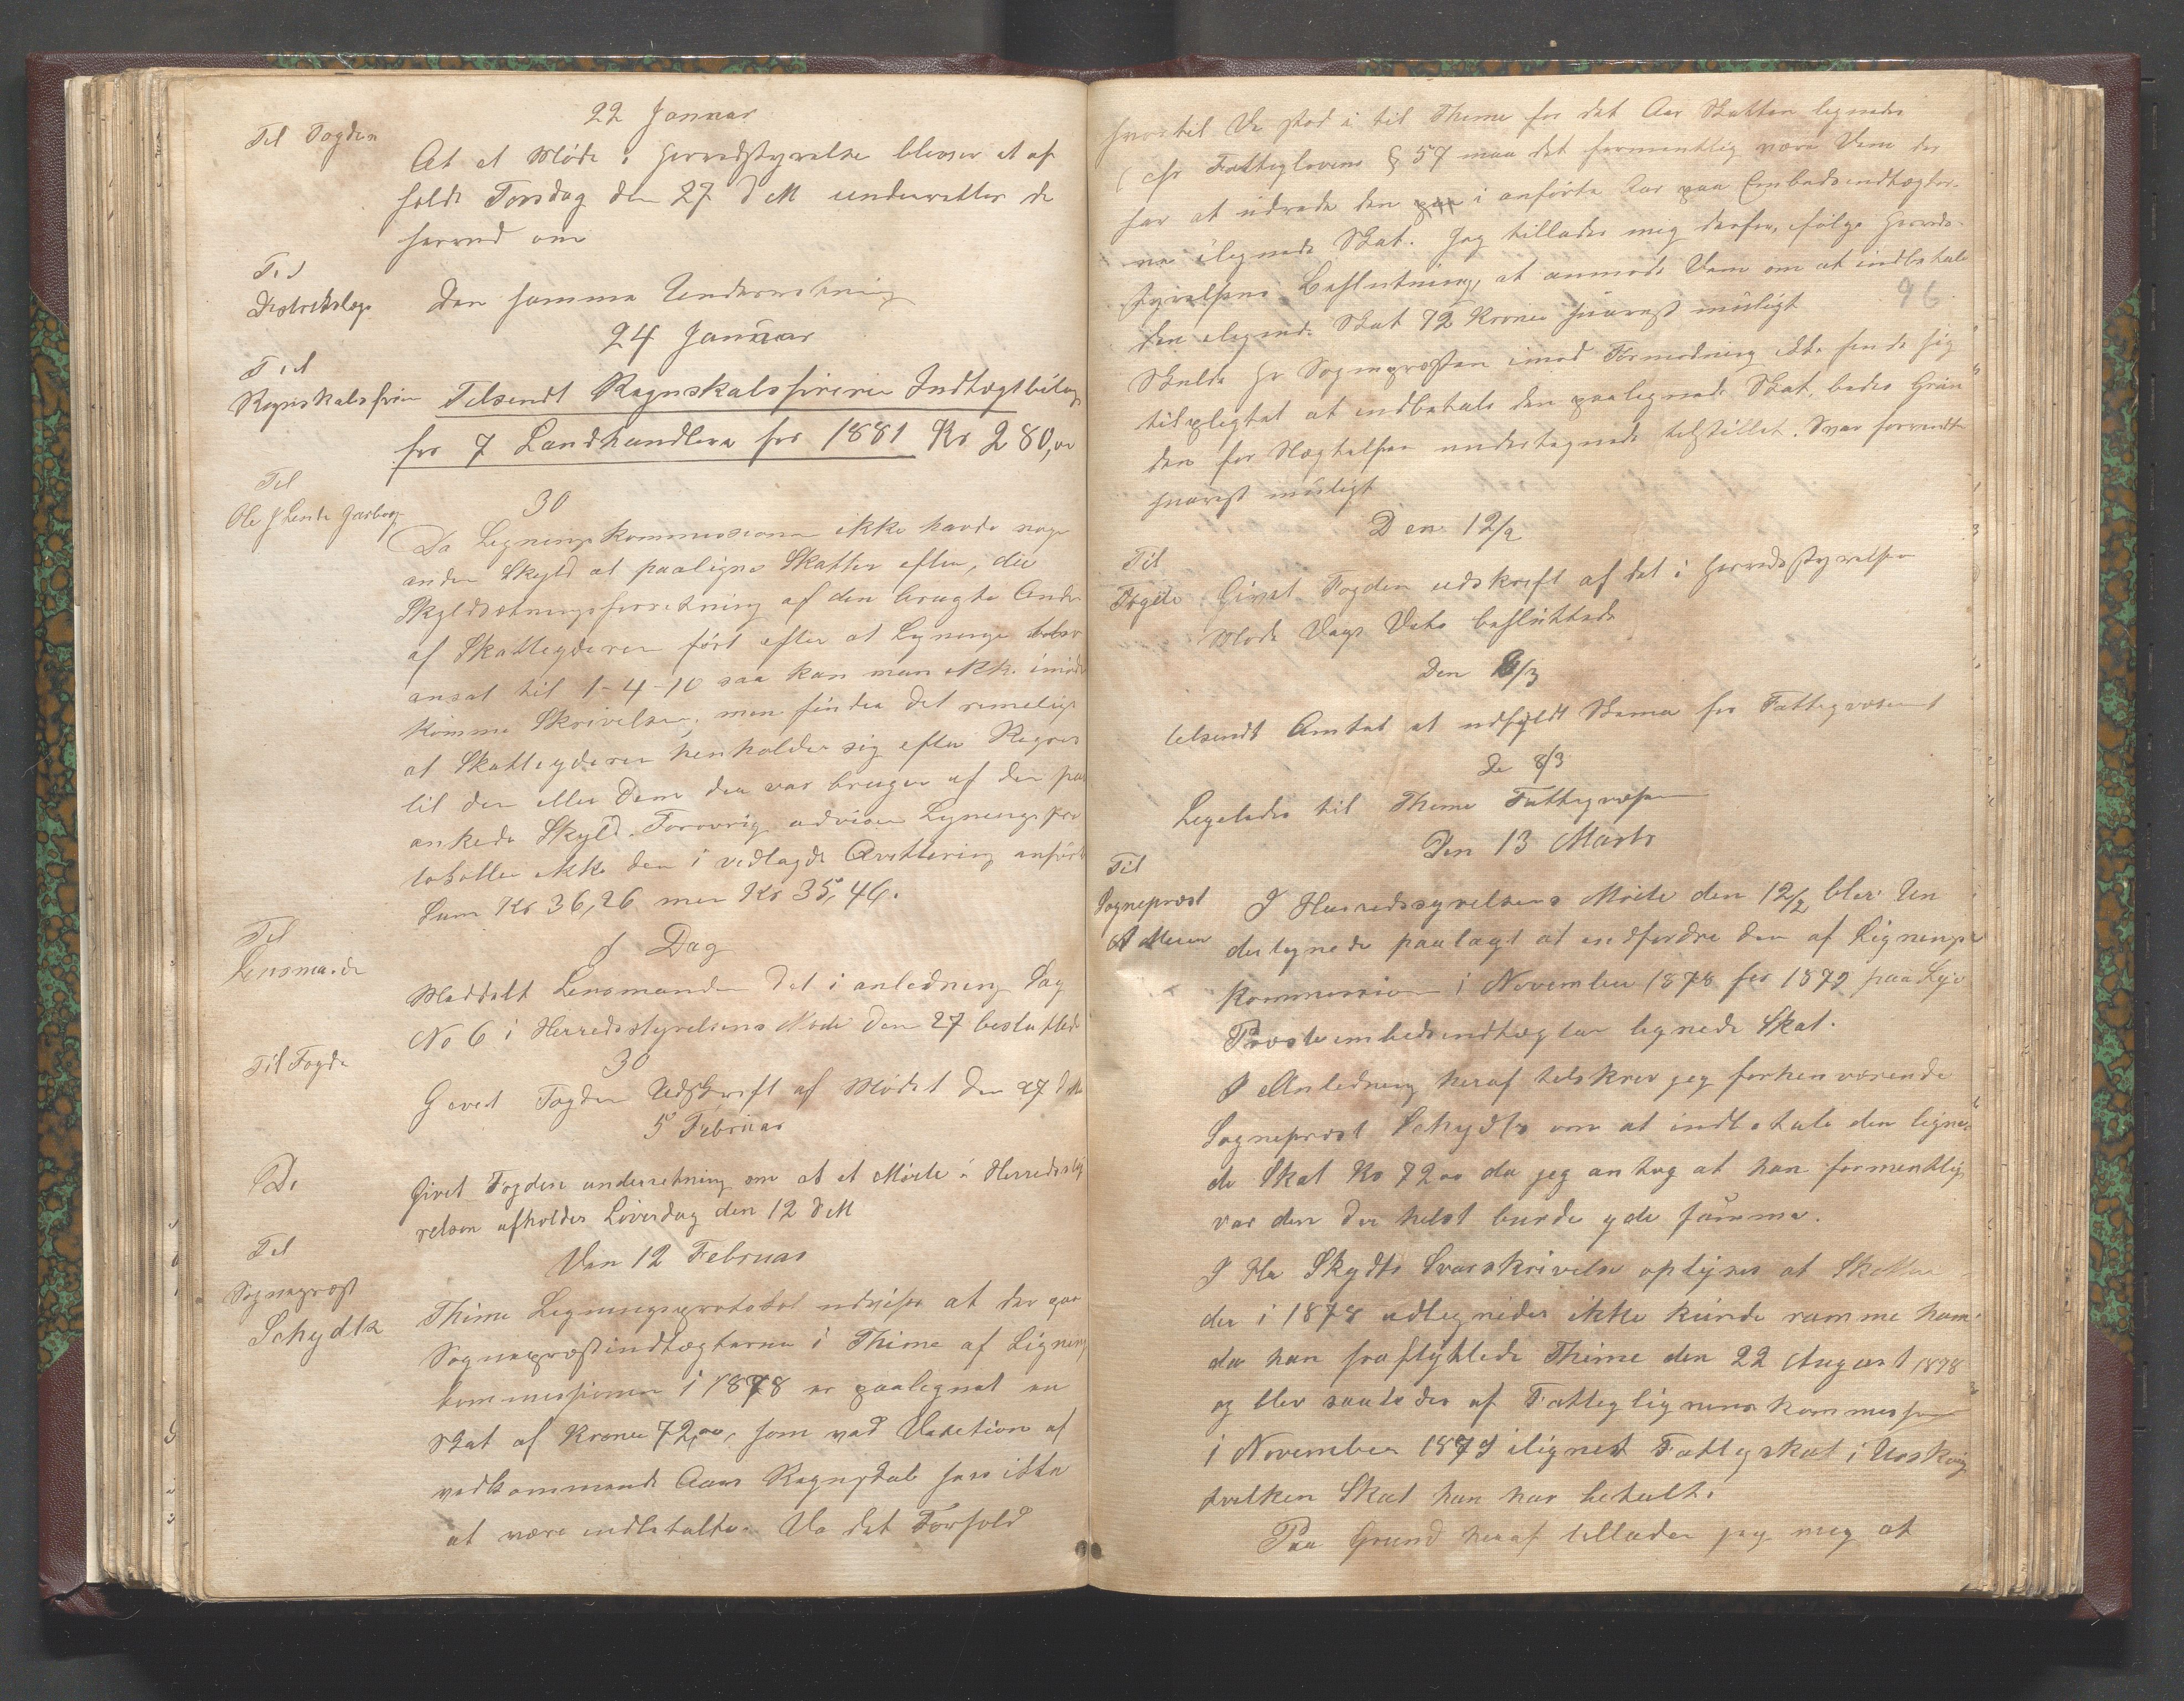 22 Januar
Til Fogden
At et Møde i Herredstyrelse blever at af
holdt Torsdag den 27 d M underrettes de
herved om
Til
Distrikslæge
Den samme Underretning
24 Januar
Til
Regnskalsfører
Tilsendt Regnskalsføreren Indtægtbilag
for 7 Landhandlere for 1881 Kr 280,00
Til
Ole J Lende Garborg
30
Da Ligningskommissionen ikke havde noge
anden Skyld at paaligne Skatter efter, da
Skyldsætningsforretning af den brugte Ande
af Skatteyderen ført efter at Ligninge
ansat til 1-4-10 saa kan man ikke imøde
komme Skrivelsen, men findes det rimelig
at Skatteyderen henholder sig efter Regres
til den eller Dem der var bruger af den paa
ankede Skyld. Forøvrig udviser Lignings pro
tokollen ikke den i vedlagde Qvittering anført
Sum Kr 36,26 men Kr 35,46.
Til
Lensmande
I Dag
Meddelt Lensmanden Det i anledning Sag
No 6 i Herredsstyrelsens Møde Den 27 besluttede
Til Fogde
30
Givet Fogden Udskrift af Mødet Den 27 d M
5 Februar
Do
Givet Fogden underretning om at et Møde i Herredssty
relsen afholdes Løverdag den 12 d M
Den 12 Februar
Til
Sognepræst
Schydtz
Thime Ligningsprotokol udviser at der paa
Sognepræstindtægterne i Thime af Lignings
kommissionen i 1878 er paalignet en
Skat af Kroner 72,00, som ved Decition af
vedkommende Aars Regnskab sees ikke
at være indbetalte. Da det Forhold
hvortil De stod i til Thime for det Aar Skatten lignedes
(cfr Fattiglovens § 57 maa det formentlig være Dem der
har at udrede den i anførte Aar paa Embedsindtægter-
ne ilignede Skat. Jeg tillader mig derfor, ifølge Herreds-
styrelsens Beslutning, at anmode Dem om at indbetale
den ilignede Skat 72 Kroner snarest muligt
96
Skulde Hr Sognepræsten imod Formodning ikke finde sig
tilpligtet at indbetale den paalignede Skat, bedes Grun
den for Nægtelsen undertegnede tilstillet. Svar forventes
snarest muligt
Den 12/2
Til
Fogden
Givet Fogden udskrift af det i Herredsstyrelsen
Møde Dags Dato besluttede
Den 6/3
tilsendt Amtet et udfyldt Skema for Fattigvæsenet
De 8/3
Ligeledes til Thime Fattigvæsen
Den 13 Marts
Til
Sognepræst
I Herredsstyrelsens Møde den 12/2 blev Un
dertegnede paalagt at indfordre den af Lignings
kommission i November 1878 for 1879 paa Lye
Præsteembedsindtægter lignede Skat.
I Anledning heraf tilskrev jeg forhenværende
Sognepræst Schydtz om at indbetale den ligne
de Skat Kr 72,00 da jeg antog at han formentlig
var den der helst burde yde samme.
I Hr Skydts Svarskrivelse oplyses at Skatten
der i 1878 udlignedes ikke kunde ramme ham
da han fraflyttede Thime den 22 August 1878
og blev saaledes af Fattiglignings kommission
i November 1879 ilignet Fattigskat i Urskoug
hvilken Skat han har betalt.
Paa Grund heraf tillader jeg mig at